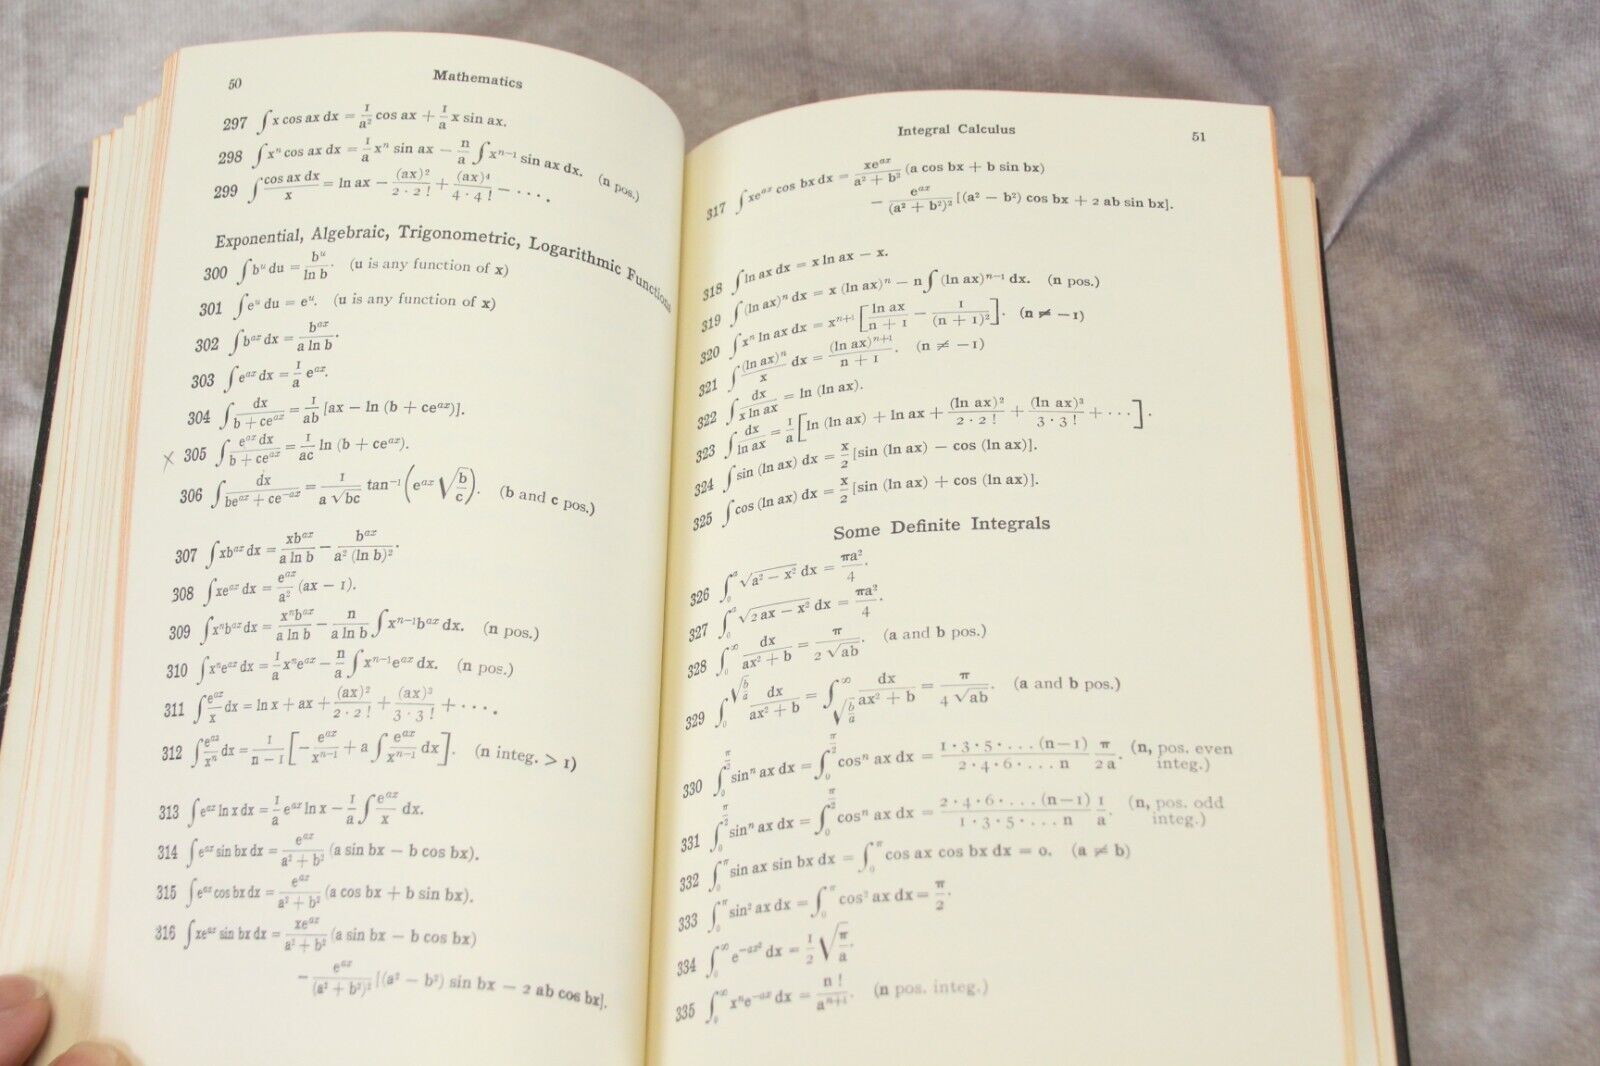 50 Mathematics
297 ∫ x cos ax dx = 1/a² cos ax + 1/a x sin ax.
298 ∫ xⁿ cos ax dx = 1/a xⁿ sin ax − n/a ∫ xⁿ⁻¹ sin ax dx. (n pos.)
299 ∫ cos ax dx/x = ln ax − (ax)²/2·2! + (ax)⁴/4·4! − ....
Exponential, Algebraic, Trigonometric, Logarithmic Functions
300 ∫ bᵘ du = bᵘ/ln b. (u is any function of x)
301 ∫ eᵘ du = eᵘ. (u is any function of x)
302 ∫ bᵃˣ dx = bᵃˣ/a ln b.
303 ∫ eᵃˣ dx = 1/a eᵃˣ.
304 ∫ dx/b + ceᵃˣ = 1/ab [ax − ln (b + ceᵃˣ)].
x 305 ∫ eᵃˣ dx/b + ceᵃˣ = 1/ac ln (b + ceᵃˣ).
306 ∫ dx/beᵃˣ + ce⁻ᵃˣ = 1/a √bc tan⁻¹ (eᵃˣ √b/c). (b and c pos.)
307 ∫ xbᵃˣ dx = xbᵃˣ/a ln b − bᵃˣ/a² (ln b)².
308 ∫ xeᵃˣ dx = eᵃˣ/a² (ax − 1).
309 ∫ xⁿbᵃˣ dx = xⁿbᵃˣ/a ln b − n/a ln b ∫ xⁿ⁻¹bᵃˣ dx. (n pos.)
310 ∫ xⁿeᵃˣ dx = 1/a xⁿeᵃˣ − n/a ∫ xⁿ⁻¹eᵃˣ dx. (n pos.)
311 ∫ eᵃˣ/x dx = ln x + ax + (ax)²/2·2! + (ax)³/3·3! + ....
312 ∫ eᵃˣ/xⁿ dx = 1/n − 1 [− eᵃˣ/xⁿ⁻¹ + a ∫ eᵃˣ/xⁿ⁻¹ dx]. (n integ. > 1)
313 ∫ eᵃˣ ln x dx = 1/a eᵃˣ ln x − 1/a ∫ eᵃˣ/x dx.
314 ∫ eᵃˣ sin bx dx = eᵃˣ/a² + b² (a sin bx − b cos bx).
315 ∫ eᵃˣ cos bx dx = eᵃˣ/a² + b² (a cos bx + b sin bx).
316 ∫ xeᵃˣ sin bx dx = xeᵃˣ/a² + b² (a sin bx − b cos bx)
− eᵃˣ/(a² + b²)² [(a² − b²) sin bx − 2 ab cos bx].
Integral Calculus 51
317 ∫ xeᵃˣ cos bx dx = xeᵃˣ/a² + b² (a cos bx + b sin bx)
− eᵃˣ/(a² + b²)² [(a² − b²) cos bx + 2 ab sin bx].
318 ∫ ln ax dx = x ln ax − x.
319 ∫ (ln ax)ⁿ dx = x (ln ax)ⁿ − n ∫ (ln ax)ⁿ⁻¹ dx. (n pos.)
320 ∫ xⁿ ln ax dx = xⁿ⁺¹ [ln ax/n + 1 − 1/(n + 1)²]. (n ≠ −1)
321 ∫ (ln ax)ⁿ/x dx = (ln ax)ⁿ⁺¹/n + 1. (n ≠ −1)
322 ∫ dx/x ln ax = ln (ln ax).
323 ∫ dx/ln ax = 1/a [ln (ln ax) + ln ax + (ln ax)²/2·2! + (ln ax)³/3·3! + ...].
324 ∫ sin (ln ax) dx = x/2 [sin (ln ax) − cos (ln ax)].
325 ∫ cos (ln ax) dx = x/2 [sin (ln ax) + cos (ln ax)].
Some Definite Integrals
326 ∫₀ᵃ √a² − x² dx = πa²/4.
327 ∫₀ᵃ √2 ax − x² dx = πa²/4.
328 ∫₀^∞ dx/ax² + b = π/2 √ab. (a and b pos.)
329 ∫₀^√b/a dx/ax² + b = ∫_√b/a^∞ dx/ax² + b = π/4 √ab. (a and b pos.)
330 ∫₀^π/2 sinⁿ ax dx = ∫₀^π/2 cosⁿ ax dx = 1·3·5·...(n−1)/2·4·6·...n π/2a. (n, pos. even integ.)
331 ∫₀^π/2 sinⁿ ax dx = ∫₀^π/2 cosⁿ ax dx = 2·4·6·...(n−1)/1·3·5·...n 1/a. (n, pos. odd integ.)
332 ∫₀^π sin ax sin bx dx = ∫₀^π cos ax cos bx dx = 0. (a ≠ b)
333 ∫₀^π sin² ax dx = ∫₀^π cos² ax dx = π/2.
334 ∫₀^∞ e^−ax² dx = 1/2 √π/a.
335 ∫₀^∞ xⁿe⁻ᵃˣ dx = n!/aⁿ⁺¹. (n pos. integ.)